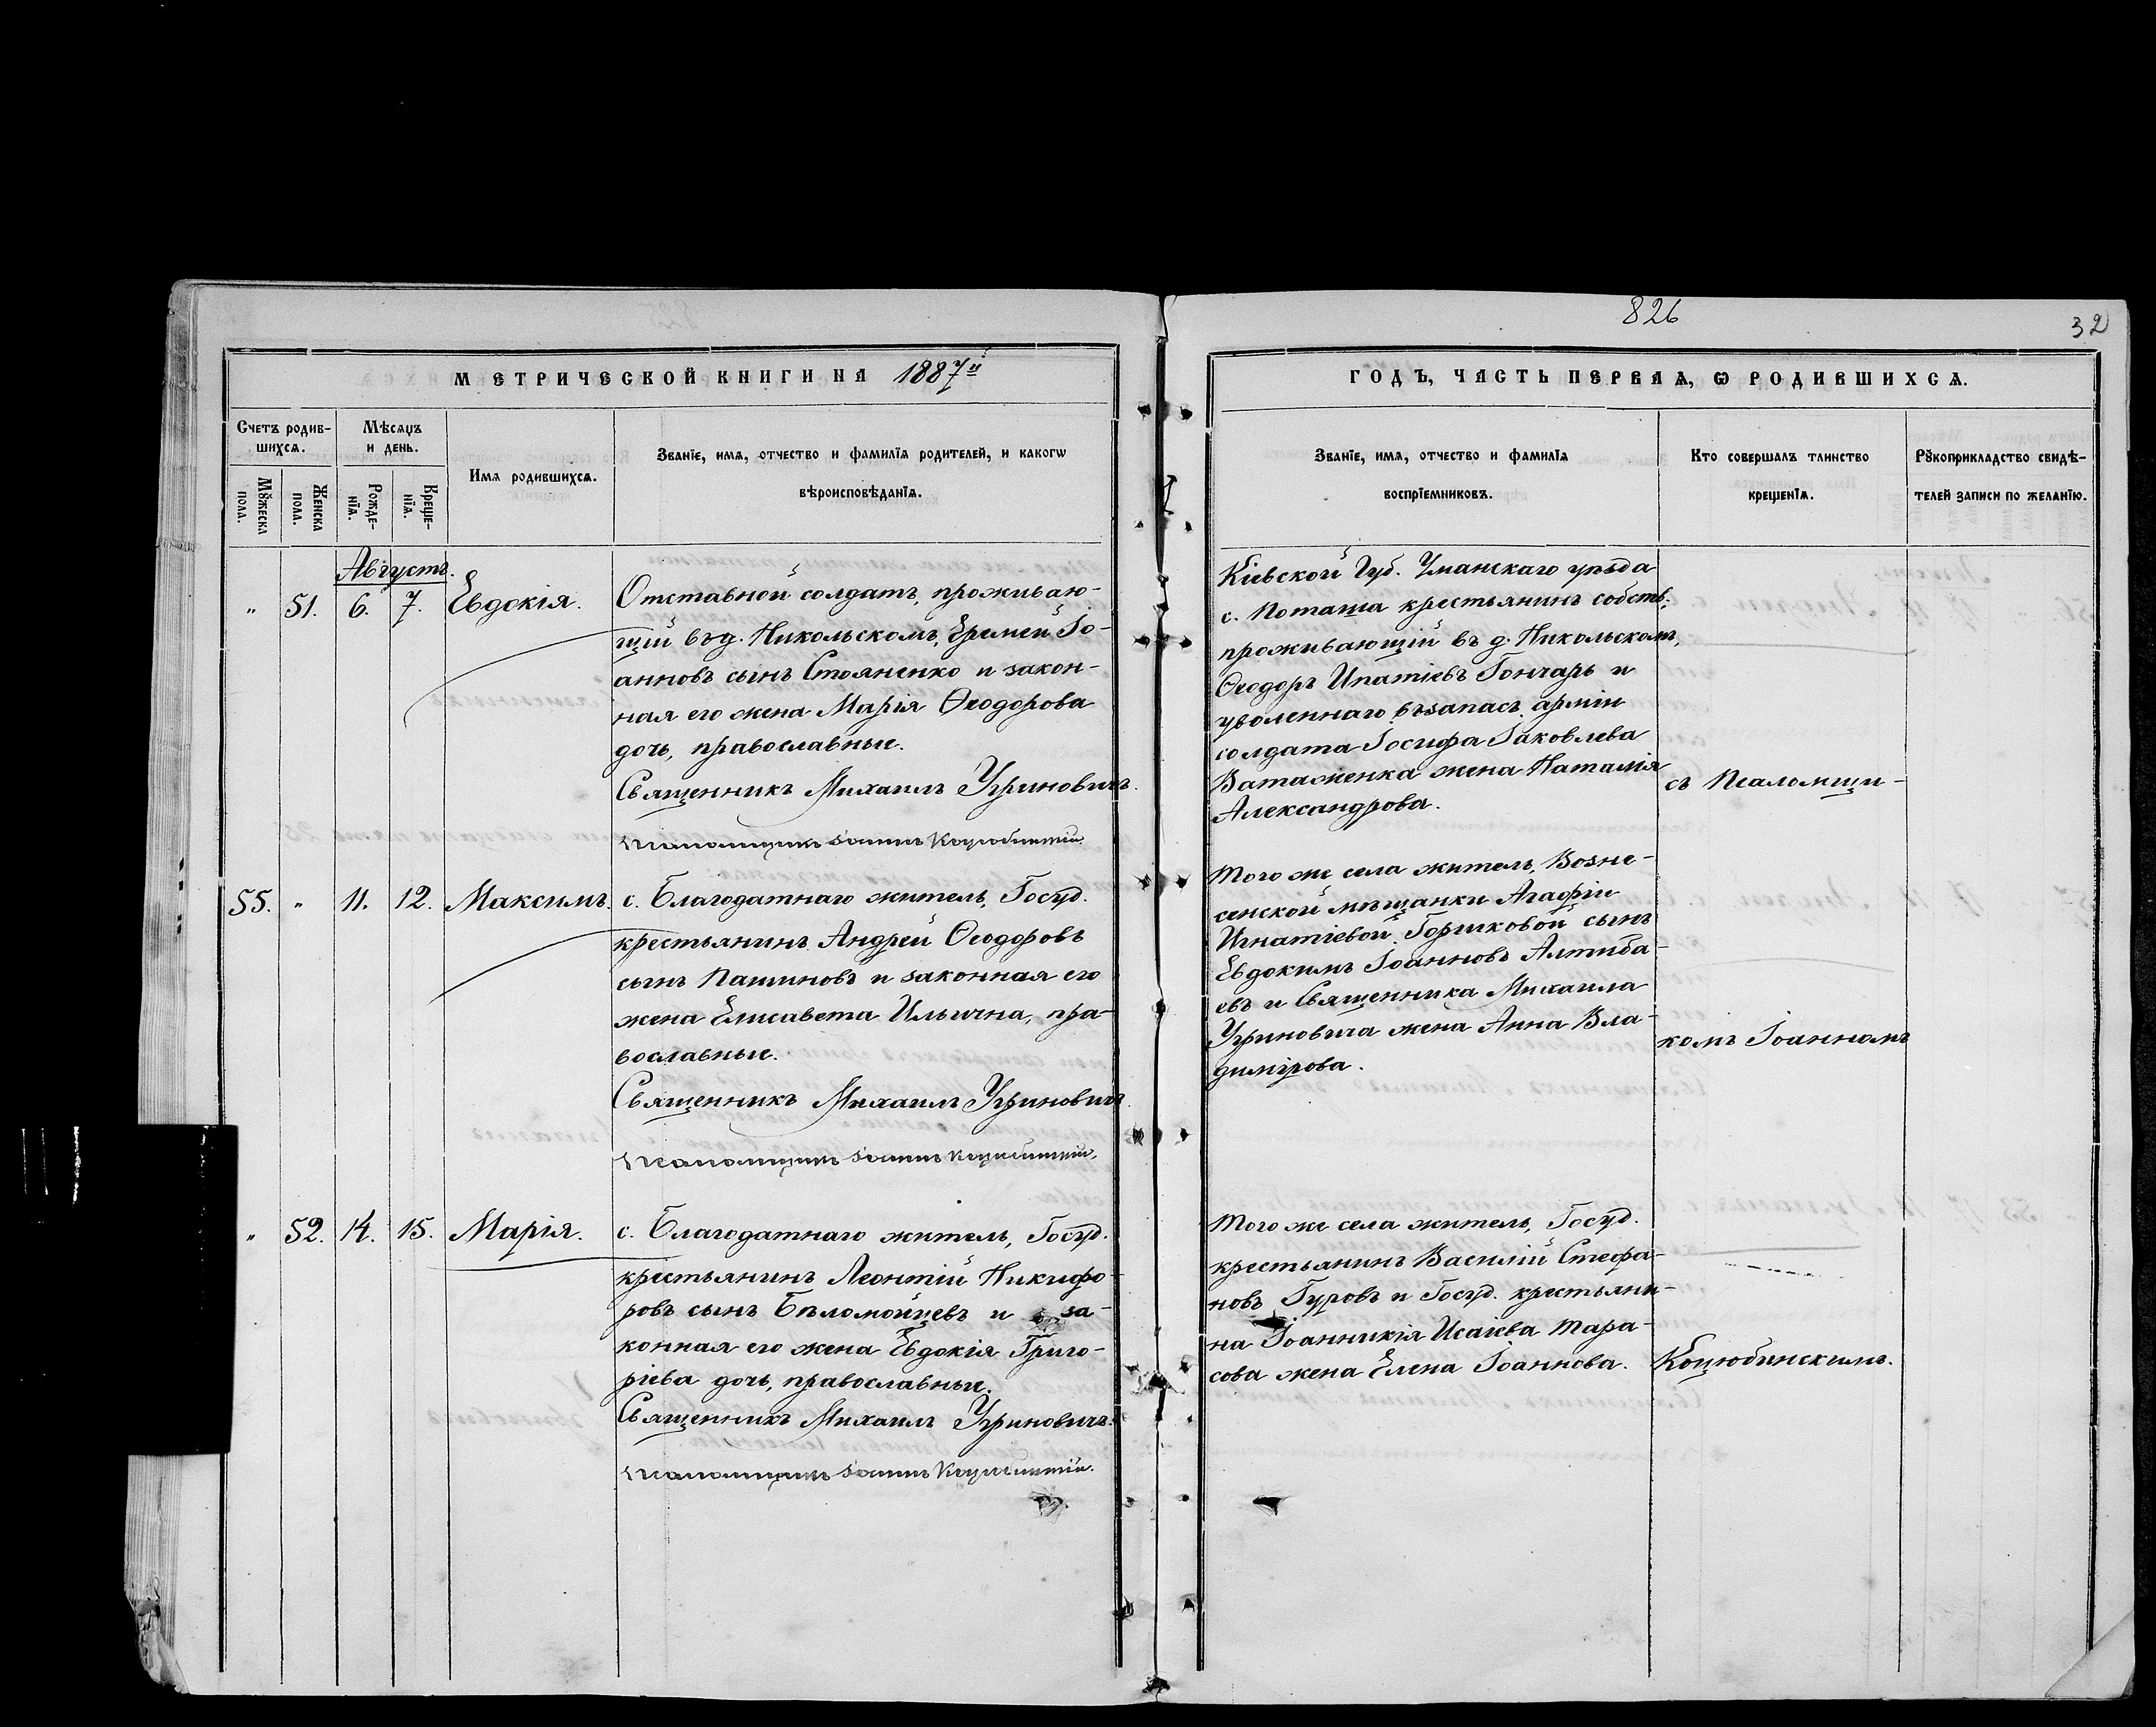 826
32
МЕТРИЧЕСКОЙ КНИГИ НА 1887й
ГОДЪ, ЧАСТЬ ПЕРВАЯ, Ѡ РОДИВШИХСѦ.
Счетъ родив-
шихсѧ.
Мѣсѧцъ
и день.
Имѧ родившихсѧ.
Званїе, имѧ, отчество и фамилїѧ родителей, и какогѡ
вѣроисповѣданїѧ.
Мꙋжеска
пола.
Женска
пола.
Рожде-
нїѧ.
Креще-
нїѧ.
Званїе, имѧ, отчество и фамилїѧ
воспрїемниковъ.
Кто совершалъ таинство
крещенїѧ.
Рꙋкоприкладство свидѣ-
телей записи по желанїю.
Августъ.
" 51. 6. 7. Евдокія.
Отставной солдатъ, проживаю-
щій въ д. Никольскомъ, Еремей Іо-
анновъ сынъ Стояненко и закон-
ная его жена Марія Ѳеодорова
дочь, православные.
Священникъ Михаилъ Угриновичъ.
Псаломщикъ Іоаннъ Коцюбинскій.
Кіевской Губ. Уманскаго уѣзда
с. Поташа крестьянинъ собств.,
проживающій въ д. Никольскомъ,
Ѳеодоръ Ипатіевъ Гончарь и
уволеннаго въ запасъ арміи
солдата Іосифа Іаковлева
Ватаженка жена Наталія
Александрова.
съ Псаломщи-
55. " 11. 12. Максимъ.
с. Благодатнаго житель, Госуд.
крестьянинъ Андрей Ѳеодоровъ
сынъ Пашиновъ и законная его
жена Елисавета Ильична, пра-
вославные.
Священникъ Михаилъ Угриновичъ.
Псаломщикъ Іоаннъ Коцюбинскій.
Того же села житель, Возне-
сенской мѣщанки Агафіи
Игнатіевой Горшковой сынъ
Евдокимъ Іоанновъ Алтиба-
евъ и Священника Михаила
Угриновича жена Анна Вла-
димірова.
комъ Іоанномъ
" 52. 14. 15. Марія.
с. Благодатнаго житель, Госуд.
крестьянинъ Леонтій Никифо-
ровъ сынъ Бѣломойцевъ и за-
конная его жена Евдокія Григо-
ріева дочь, православные.
Священникъ Михаилъ Угриновичъ.
Псаломщикъ Іоаннъ Коцюбинскій.
Того же села житель, Госуд.
крестьянинъ Василій Стефа-
новъ Гуровъ и Госуд. крестьяни-
на Іоанникія Исаіева Тара-
сова жена Елена Іоаннова.
Коцюбинскимъ.